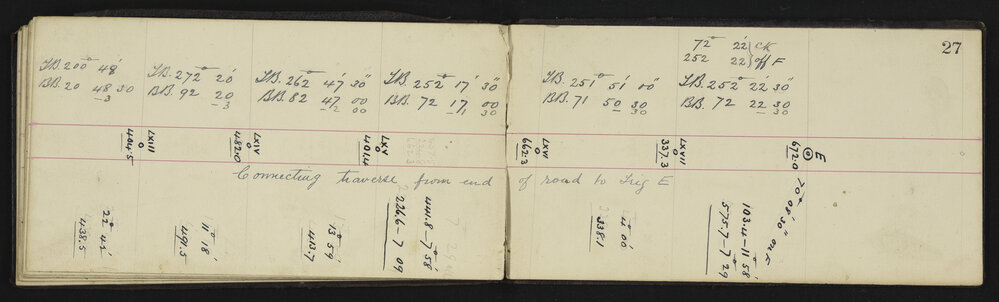 27
72° 22' } CK
252 22 } off F
F.B. 200° 49'
B.B. 20 48 30
-3
F.B. 272° 20'
B.B. 92 20
-3
F.B. 262° 47' 30"
B.B. 82 47 00
-2 00
F.B. 252° 17' 30"
B.B. 72 17 00
-1 30
F.B. 251° 51' 00"
B.B. 71 50 30
30
F.B. 252° 22' 30"
B.B. 72 22 30
- 30
LXIII
404.5
LXIV
482.0
LXV
404.4
LXVI
662.3
LXVII
337.3
E
672.0
Connecting traverse from end of road to Trig E
438.5
491.5
11° 18'
413.7
13° 59'
226.6 - 7 09
441.8 - 7° 58'
338.1
11° 00'
575.7 - 7 29
103.4 - 11° 58'
70° 05' 30"